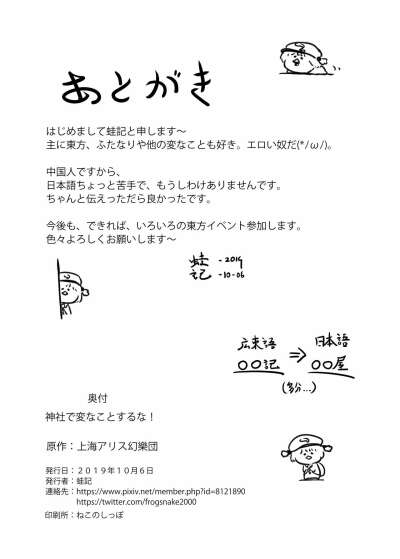 あとがき
はじめまして蛙記と申します～
主に東方、ふたなりや他の変なことも好き。エロい奴だ(*/ω/)。
中国人ですから、
日本語ちょっと苦手で、もうしわけありませんです。
ちゃんと伝えったら良かったです。
今後も、できれば、いろいろの東方イベント参加します。
色々よろしくお願いします～
蛙 - 2019
记 - 10-06
広東語 日本語
〇〇記 ⇒ 〇〇屋
(多分...)
奥付
神社で変なことするな！
原作：上海アリス幻樂団
発行日：２０１９年１０月６日
発行者：蛙記
連絡先：https://www.pixiv.net/member.php?id=8121890
https://twitter.com/frogsnake2000
印刷所：ねこのしっぽ